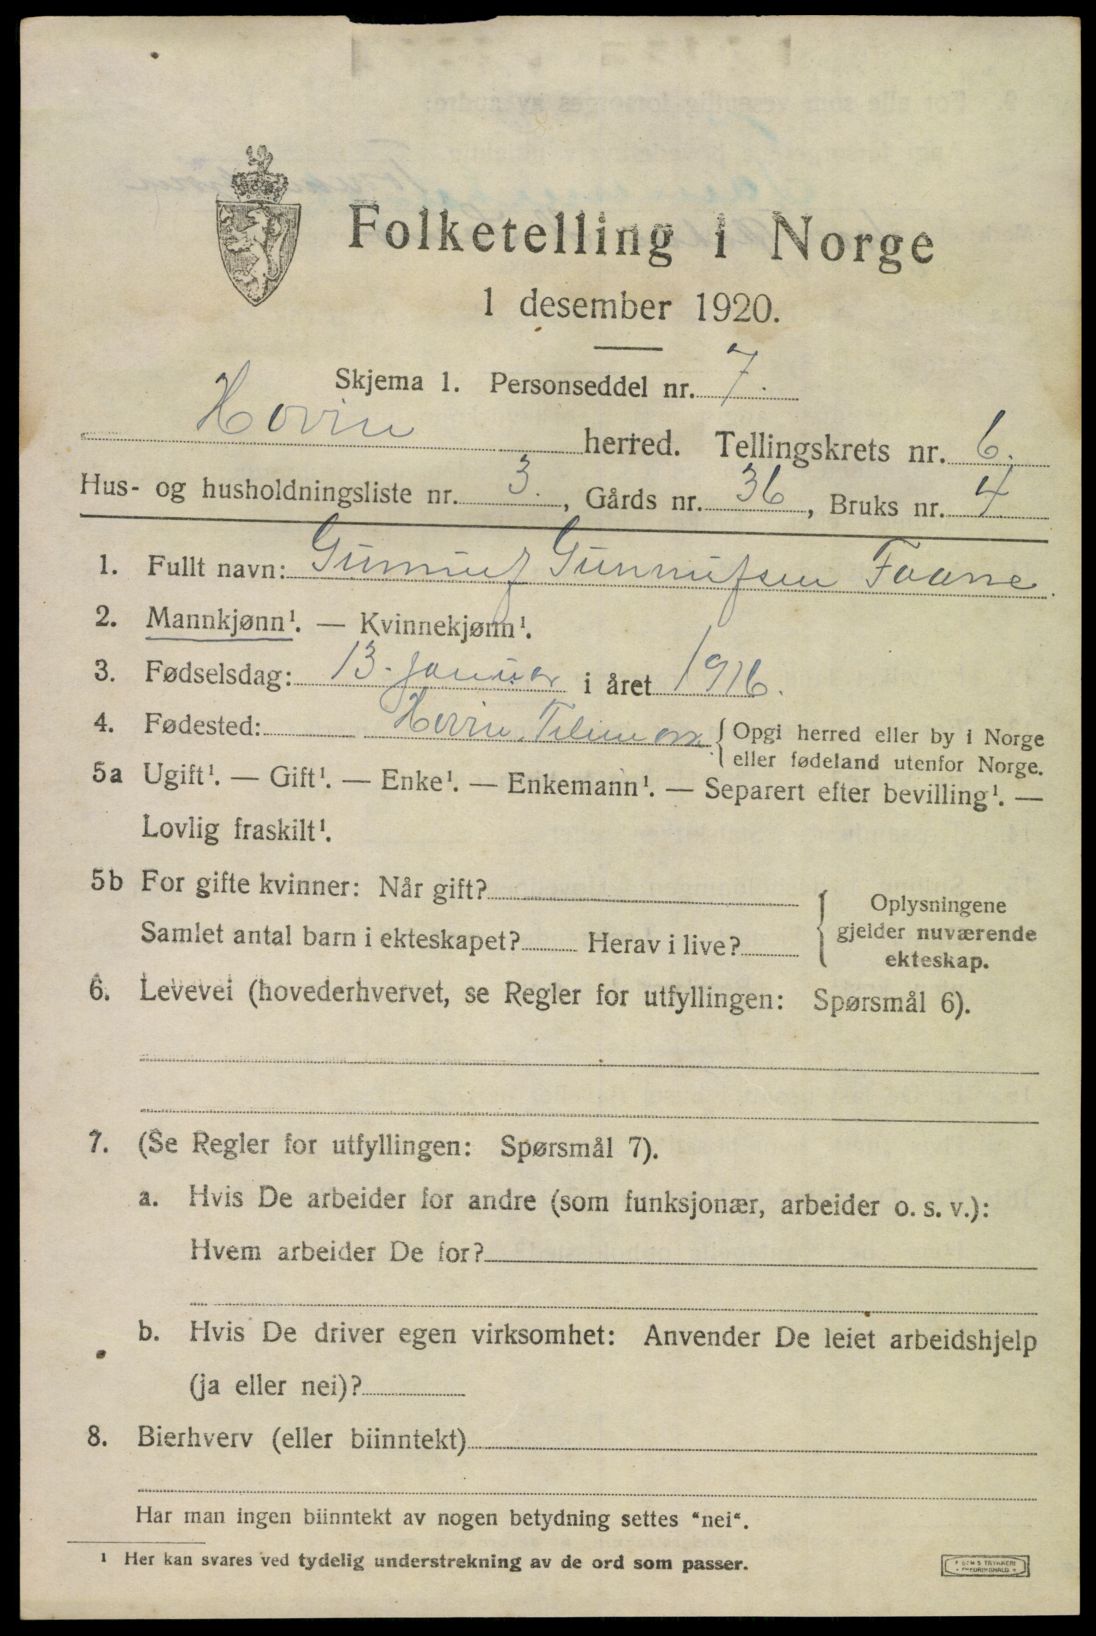 Folketelling i Norge
1 desember 1920.
Skjema 1. Personseddel nr. 7.
Hovin herred. Tellingskrets nr. 6.
Hus- og husholdningsliste nr. 3., Gårds nr. 36, Bruks nr. 4
1. Fullt navn: Gunnuf Gunnufsen Faane.
2. Mannkjønn¹. — Kvinnekjønn¹.
3. Fødselsdag: 13. januar i året 1916.
4. Fødested: Hovin, Telemark { Opgi herred eller by i Norge
eller fødeland utenfor Norge.
5a Ugift¹. — Gift¹. — Enke¹. — Enkemann¹. — Separert efter bevilling¹. —
Lovlig fraskilt¹.
5b For gifte kvinner: Når gift?
Samlet antal barn i ekteskapet? Herav i live?
{ Oplysningene
gjelder nuværende
ekteskap.
6. Levevei (hovederhvervet, se Regler for utfyllingen: Spørsmål 6).
7. (Se Regler for utfyllingen: Spørsmål 7).
a. Hvis De arbeider for andre (som funksjonær, arbeider o. s. v.):
Hvem arbeider De for?
b. Hvis De driver egen virksomhet: Anvender De leiet arbeidshjelp
(ja eller nei)?
8. Bierhverv (eller biinntekt)
Har man ingen biinntekt av nogen betydning settes "nei".
¹ Her kan svares ved tydelig understrekning av de ord som passer.